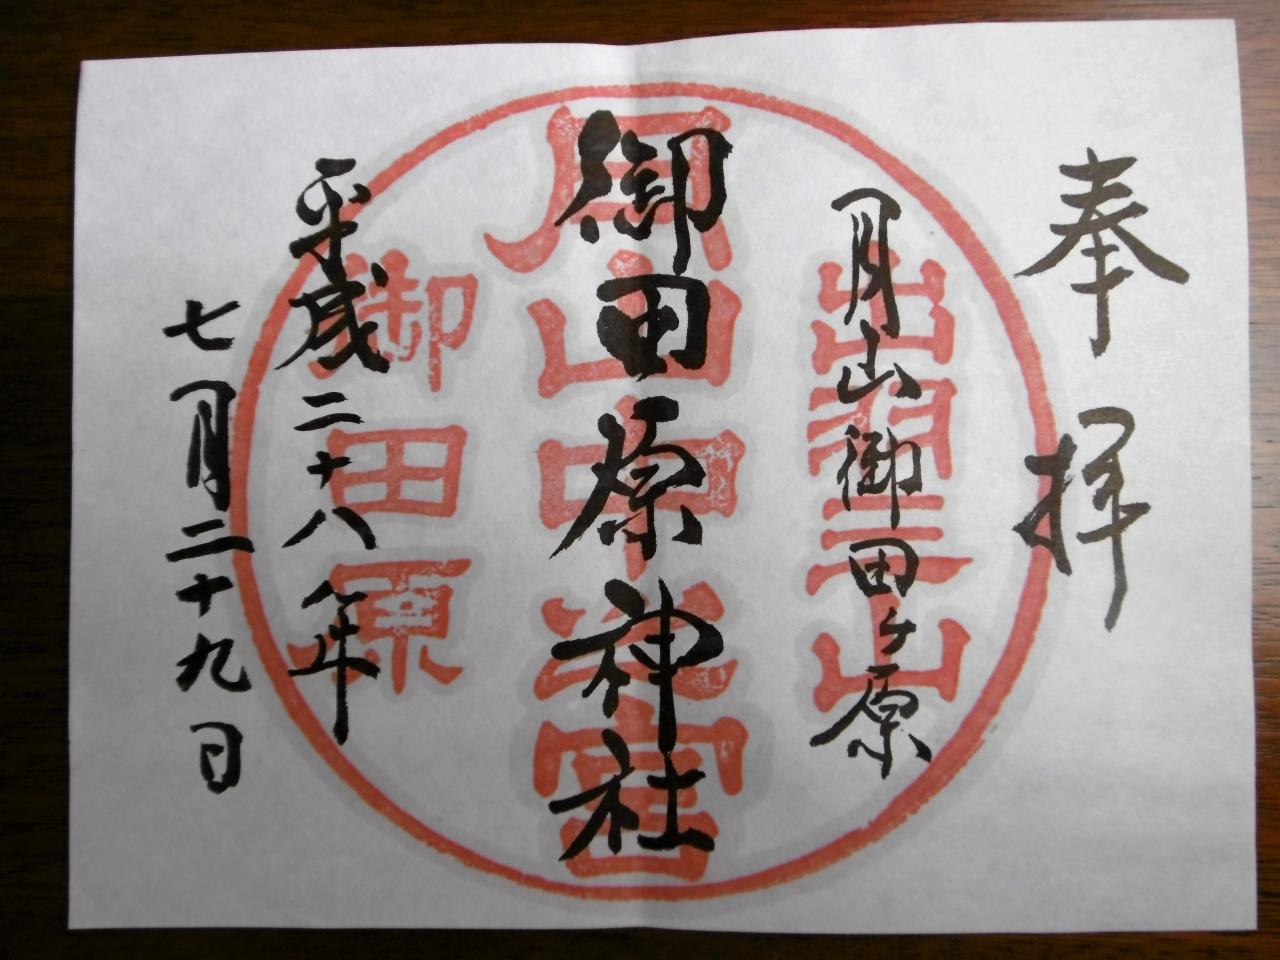 奉拝
月山御田ヶ原
御田原神社
平成二十八年
七月二十九日
出羽三山
月山中之宮
御田原